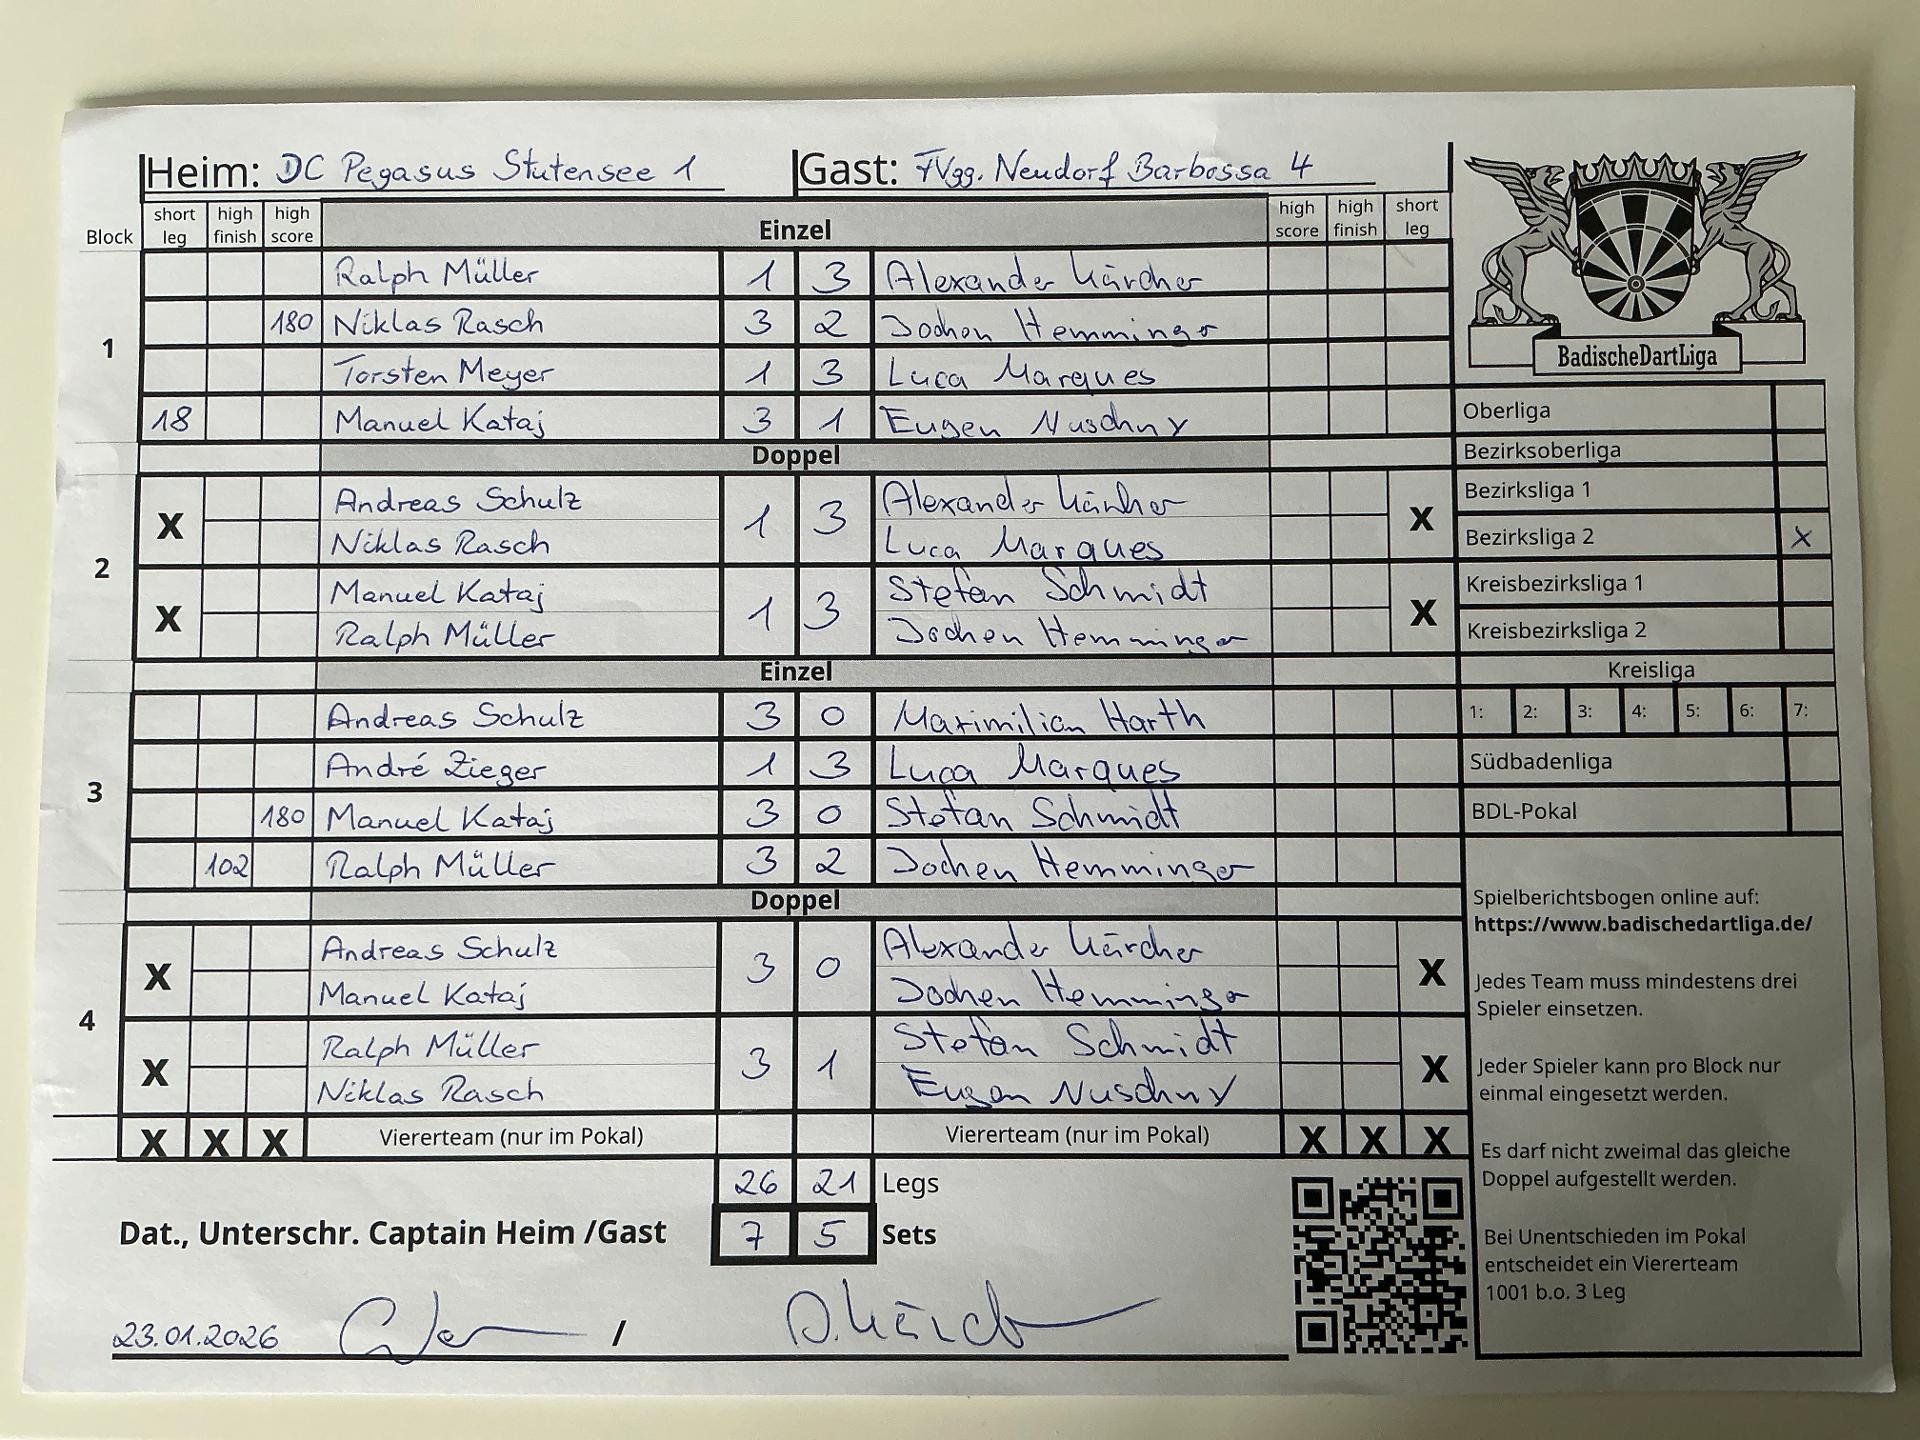 Heim: DC Pegasus Stutensee 1 Gast: FVgg. Neudorf Barbossa 4
Block short leg high finish high score Einzel high score high finish short leg
Ralph Müller 1 3 Alexander Kärcher
180 Niklas Rasch 3 2 Jochen Hemminger
1
Torsten Meyer 1 3 Luca Marques
18 Manuel Kataj 3 1 Eugen Nuschny
Doppel
X Andreas Schulz 1 3 Alexander Kärcher X
Niklas Rasch Luca Marques
2
X Manuel Kataj 1 3 Stefan Schmidt X
Ralph Müller Jochen Hemminger
Einzel
Andreas Schulz 3 0 Maximilian Harth
André Zieger 1 3 Luca Marques
3
180 Manuel Kataj 3 0 Stefan Schmidt
102 Ralph Müller 3 2 Jochen Hemminger
Doppel
X Andreas Schulz 3 0 Alexander Kärcher X
Manuel Kataj Jochen Hemminger
4
X Ralph Müller 3 1 Stefan Schmidt X
Niklas Rasch Eugen Nuschny
X X X Viererteam (nur im Pokal) Viererteam (nur im Pokal) X X X
26 21 Legs
Dat., Unterschr. Captain Heim /Gast 7 5 Sets
23.01.2026 / A. Kärch
BadischeDartLiga
Oberliga
Bezirksoberliga
Bezirksliga 1
Bezirksliga 2 X
Kreisbezirksliga 1
Kreisbezirksliga 2
Kreisliga
1: 2: 3: 4: 5: 6: 7:
Südbadenliga
BDL-Pokal
Spielberichtsbogen online auf:
https://www.badischedartliga.de/
Jedes Team muss mindestens drei
Spieler einsetzen.
Jeder Spieler kann pro Block nur
einmal eingesetzt werden.
Es darf nicht zweimal das gleiche
Doppel aufgestellt werden.
Bei Unentschieden im Pokal
entscheidet ein Viererteam
1001 b.o. 3 Leg